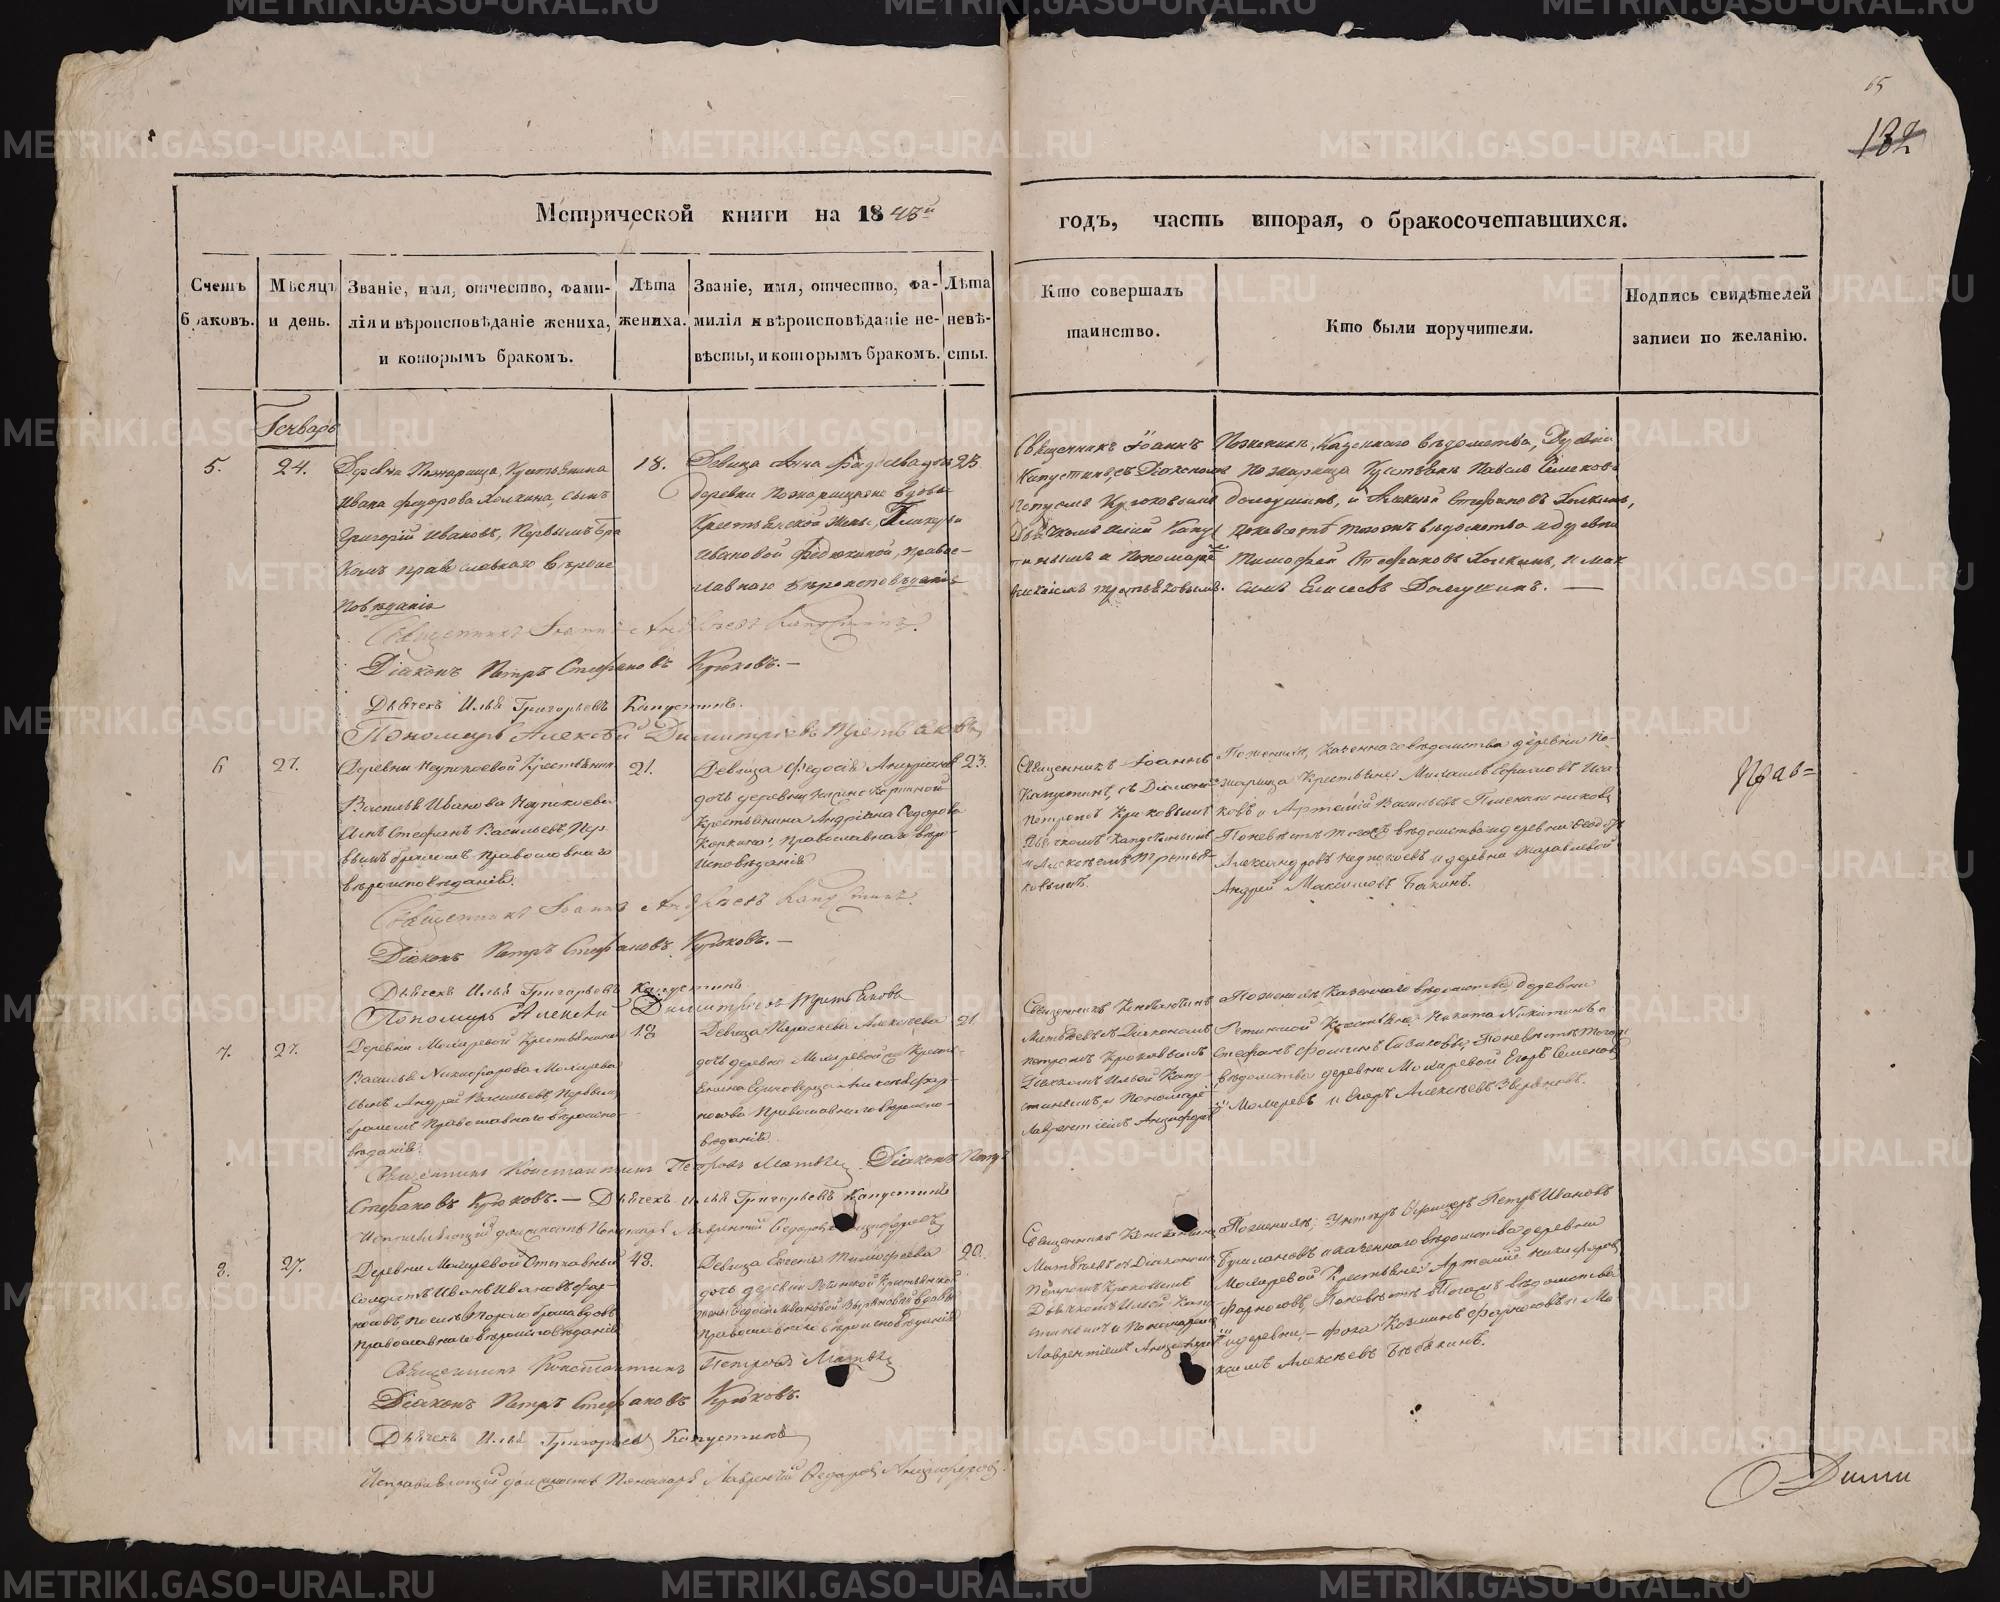 65
132
Метрической книги на 1848й
годъ, часть вторая, о бракосочетавшихся.
Счетъ браковъ.
Мѣсяцъ и день.
Званіе, имя, отчество, фами-
лія и вѣроисповѣданіе жениха,
и которымъ бракомъ.
Лѣта
жениха.
Званіе, имя, отчество, фа-
милія и вѣроисповѣданіе не-
вѣсты, и которымъ бракомъ.
Лѣта
невѣ-
сты.
Кто совершалъ
таинство.
Кто были поручители.
Подпись свидѣтелей
записи по желанію.
Генварь
5.
24.
Деревни Пожарища, Крестьянина
Ивана Федорова Холкина, сынъ
Григорій Ивановъ, Первымъ бра
комъ православнаго вѣроис
повѣданія
18.
Девица Анна
деревни вдовы
Крестьянской жены
Ивановой православ-
славнаго вѣроисповѣданія
23
Священникъ Іоаннъ
Капустинъ, съ Діакономъ
Петромъ Крюковымъ
Дьячкомъ Ильей Капус
тинымъ и Пономаремъ
Алексѣемъ Третьяковымъ.
По женихѣ, Казеннаго вѣдомства, Деревни
Пожарища Крестьяне Павелъ
и Алексей Стефановъ Холкинъ,
По невѣстѣ тогожъ вѣдомства и деревни
Тимофей Стефановъ Холкинъ, и Мак
симъ Елисеевъ
Священникъ Іоаннъ Андреевъ Капустинъ.
Діаконъ Петръ Стефановъ Крюковъ.—
Дьячекъ Илья Григорьевъ Капустинъ.
Пономарь Алексѣй Димитріевъ Третьяковъ
6
27.
Деревни Неупокоевой Крестьянина
Василья Иванова Неупокоева
сынъ Стефанъ Васильевъ, Пер-
вымъ бракомъ Православнаго
вѣроисповѣданія.
21.
Девица Федосія Андріанова
дочь деревни
Крестьянина Андріана Федорова
Коркина, Православнаго вѣро-
исповѣданія
23.
Священникъ Іоаннъ
Капустинъ, съ Діакономъ
Петромъ Крюковымъ
Дьячкомъ Капустинымъ
и Алексѣемъ Третья-
ковымъ.
По женихѣ, Казеннаго вѣдомства деревни По-
жарища Крестьяне
и Артемій Васильевъ
По невѣстѣ тогожъ вѣдомства и деревни
Александровъ Неупокоевъ и деревни Журавлевой
Андрей Максимовъ Бакинъ.
Прав=
Священникъ Іоаннъ Андреевъ Капустинъ.
Діаконъ Петръ Стефановъ Крюковъ.—
Дьячекъ Илья Григорьевъ Капустинъ
Пономарь Алексѣй Димитріевъ Третьяковъ
7.
27.
Деревни Моларевой Крестьянина
Василья Никифорова Моларева
сынъ Андрей Васильевъ, Первымъ
бракомъ Православнаго вѣроиспо-
вѣданія.
18
Девица Параскева Алексеева
дочь деревни Моларевой Кресть-
янина
Православнаго вѣроиспо-
вѣданія
21.
Священникъ Константинъ
Матвѣевъ съ Діакономъ
Петромъ Крюковымъ
Дьячкомъ Ильей Капу-
стинымъ, и Пономаремъ
Лаврентіемъ Анциферов
По женихѣ, Казеннаго вѣдомства, деревни
Крестьяне: Никита Никитинъ и
Стефанъ Фоминъ По невѣстѣ тогожъ
вѣдомства деревни Моларевой Егоръ Семеновъ
Моларевъ и Егоръ Алексѣевъ Зверевовъ.
Священникъ Константинъ Петровъ Матвѣевъ Діаконъ Петръ
Стефановъ Крюковъ.— Дьячекъ Илья Григорьевъ Капустинъ
Исправляющій должность Пономаря Лаврентій Федоровъ Анциферовъ
8.
27.
Деревни Моларевой Отставный
солдатъ Иванъ Ивановъ Фар-
носовъ, после втораго брака вдовъ
Православнаго вѣроисповѣданія
48.
Девица Евгенія Тимофеева
дочь деревни Крестьянской
жены Федосіи Ивановой вдовы
Православнаго вѣроисповѣданія
20.
Священникъ Константинъ
Матвѣевъ съ Діакономъ
Петромъ Крюковымъ
Дьячкомъ Ильей Капу-
стинымъ и Пономаремъ
Лаврентіемъ Анциферов
По женихѣ: Унтеръ Офицеръ Петръ Ивановъ
и казеннаго вѣдомства деревни
Моларевой Крестьянинъ Артемій Никифоровъ
Фарносовъ, По невѣстѣ тогожъ вѣдомства
и деревни,— Фока Козминъ Фарносовъ и Ма
ксимъ Алексѣевъ Бабкинъ.
Священникъ Константинъ Петровъ Матвѣевъ
Діаконъ Петръ Стефановъ Крюковъ.
Дьячекъ Илья Григорьевъ Капустинъ
Исправляющій должность Пономаря Лаврентій Федоровъ Анциферовъ.
Дими
METRIKI.GASO-URAL.RU